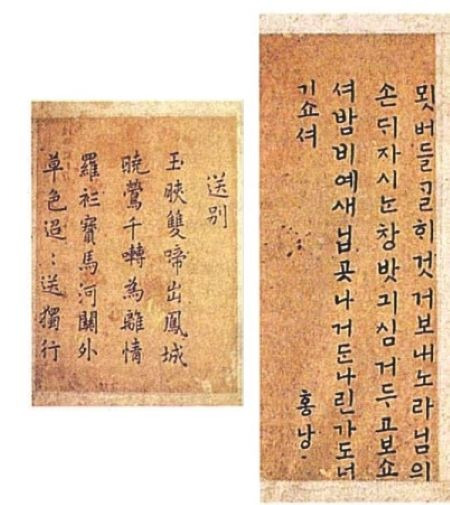 묏버들ᄀᆞᆯᄒᆡ것거보내노라님의
손ᄃᆡ자시ᄂᆞᆫ창밧긔심거두고보쇼
셔밤비예새닙곳나거든나린가도너
기쇼셔
홍낭
送別
玉頰雙啼出鳳城
曉鶯千囀為離情
羅衫寶馬河關外
草色迢〻送獨行